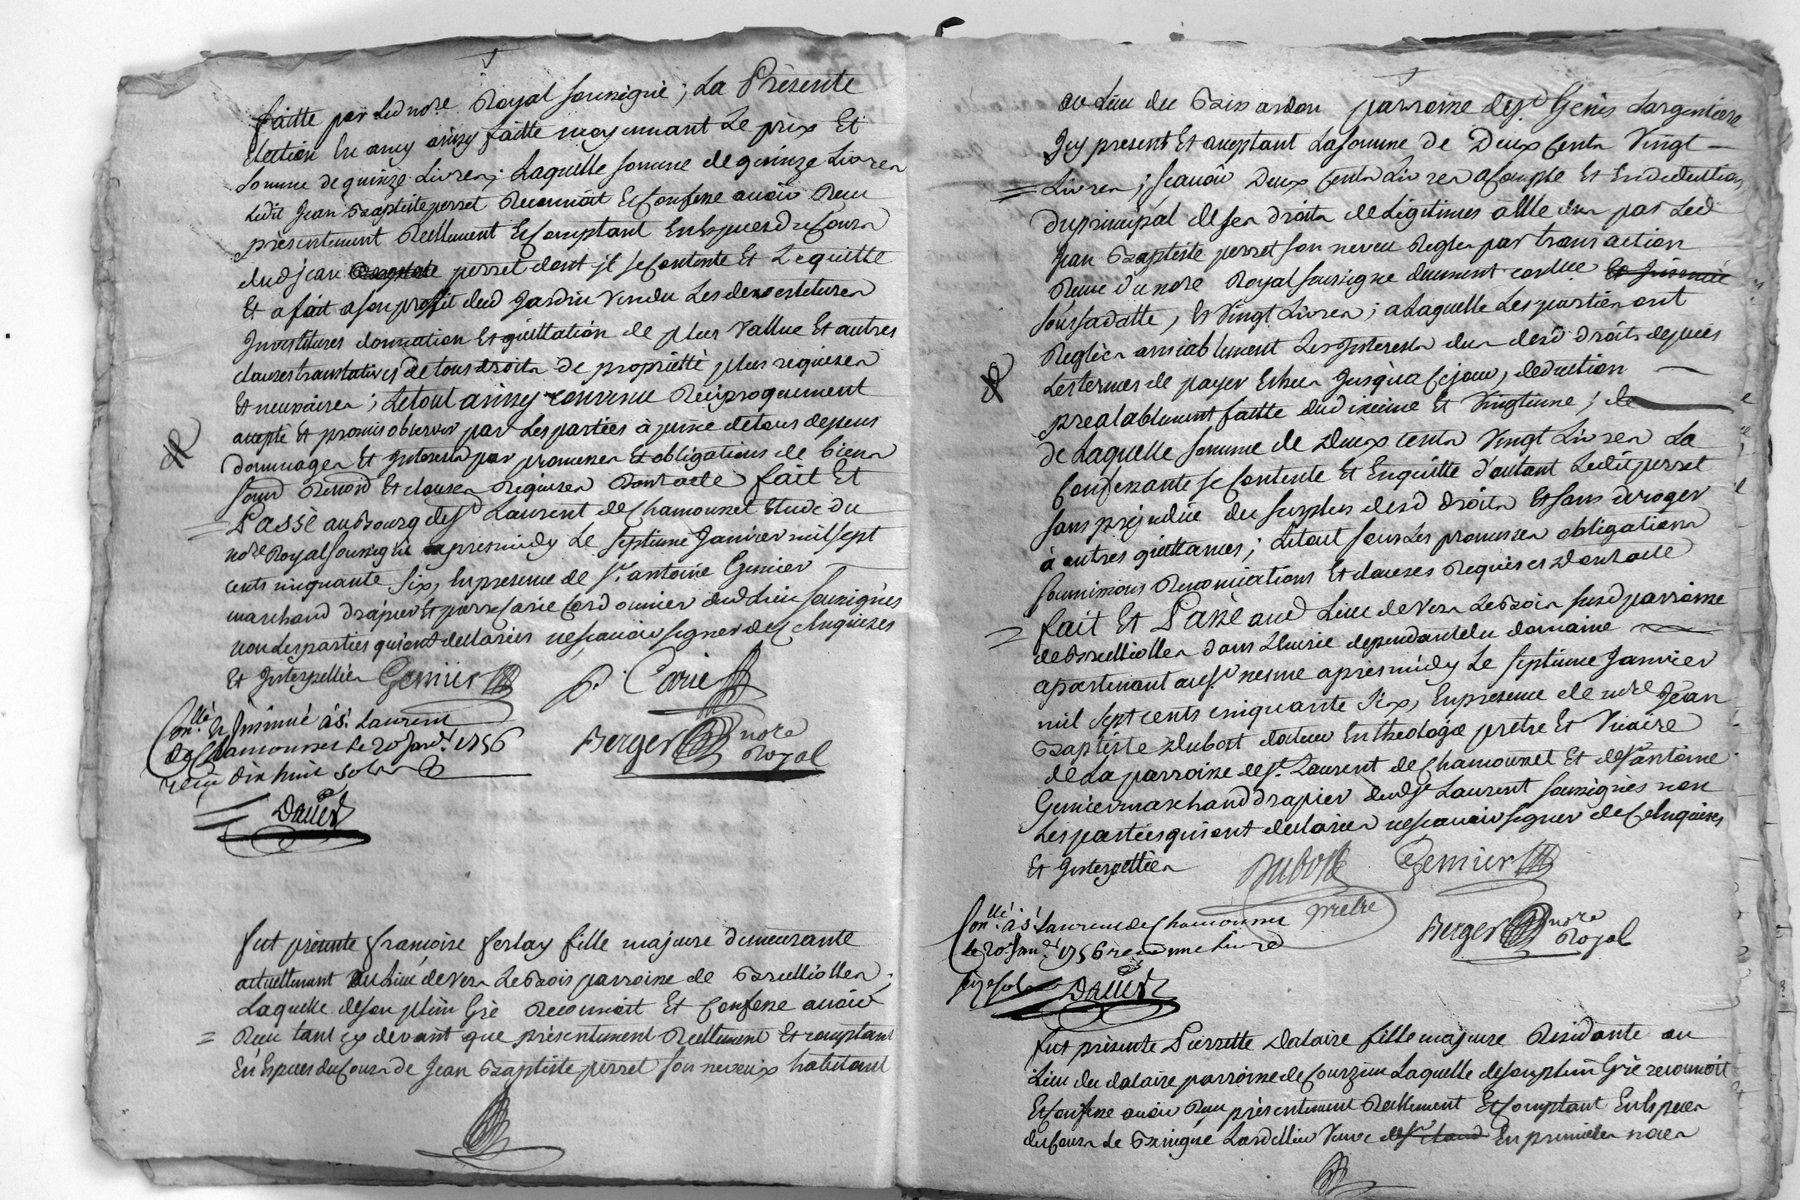 faitte par led no.re Royal soussigné ; La Présente
élection en amy ainsy faitte moyennant le prix Et
somme de quinze Livres ; Laquelle somme de quinze Livres
Ledit Jean Baptiste perret Reconnoit Et Confesse avoir Reçu
présentement Réellement Et Comptant En Espèces du Cours
dud jean perret dont jl se Contente Et Le quitte
Et a fait a son proffit dud Jardin vendu Les devestitures
Jnvestitures donnation Et quittation de plus vallue Et autres
clauses translatives de tous droits de propriétté plus requises
Et necessaires ; Le tout ainsy convenu Réciproquement
accepté Et promis observer par Les parties à peine de tous depens
dommages Et Jnterests par promesses Et obligations de biens
soumd Renond Et clauses Requises Dont acte fait Et
Passé au bourg de St Laurent de Chamousset Etude du
no.re Royal soussigné apresmidy Le septieme Janvier mil sept
cents cinquante six, En presence de Sr. antoine Gemier
marchand drapier Et pierre Carie Cordonnier dud Lieu soussignés
non Les parties qui ont declarées ne sçavoir signer de ce Enquises
Et Jnterpellées Gemier P. Carie
Con.llé Et Jnsinué à St Laurent
de Chamousset Le 20 Janv.r 1756
reçu dix huit sols
Berger no.re Royal
Dauier
fut présente françoise ferlay fille majeure demeurante
actuellement au Lieu de vers Le bois parroisse de Brullioles,
Laquelle de son plein Gré Reconnoit Et Confesse avoir
Reçu tant cy devant que présentement Réellement Et comptant
En Espèces du Cours de Jean Baptiste perret son neveux habitant
au Lieu du parroisse de St. Genis Largentiere
Jcy present Et acceptant La somme de Deux Cents Vingt
Livres ; sçavoir Deux Cents Livres a Compte Et En deduction
du principal de ses droits de Legitimes a Elle dus par Led
Jean Baptiste perret son neveu Regles par transaction
Reçue du no.re Royal soussigné
sous sa datte, Et Vingt Livres ; a Laquelle Les parties ont
Reglées amiablement Les Jnterests dus desd droits depuis
Les termes de payer Echus Jusqu'a ce jour, deduction
prealablement faitte du dixieme Et Vingtieme ; de
De Laquelle somme de Deux cents Vingt Livres La
Confessante se Contente Et En quitte d'autant Ledit perret
sans préjudice du surplus desd droits Et sans deroger
à autres quittances ; Le tout sous Les promesses obligations
soumissions Renonciations Et clauses Requises Dont acte
fait Et Passé aud Lieu de vers Le bois susd parroisse
de Brullioles dans dependante du domaine
apartenant au Sr. apresmidy Le septieme Janvier
mil sept cents cinquante six, En presence de m.re Jean
Baptiste Dubost docteur En theologie pretre Et Vicaire
de La parroisse de St. Laurent de Chamousset Et de Sr antoine
Gemier marchand drapier dud St Laurent soussignés non
Les parties qui ont declarées ne sçavoir signer de Ce Enquises
Et Jnterpellées Dubost pretre Gemier
Con.llé à St Laurent de Chamousset
Le 20 Jan.er 1756 reçu une Livre
sols Dauier
Berger no.re Royal
fut présente Pierrette Dalaire fille majeure Residante au
Lieu du dalaire parroisse de Courzieu Laquelle de son plein Gré reconnoit
Et Confesse avoir Reçu présentement Réellement Et Comptant En Espèces
du Cours de Benigne Lardellier Veuve En premières noces